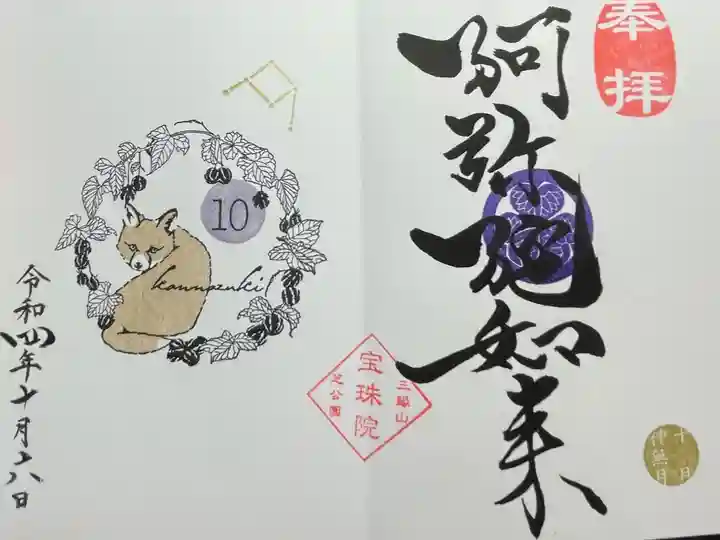 奉拝
阿弥陀如来
十月
神無月
三縁山
宝珠院
芝公園
10
kannazuki
令和四年十月六日